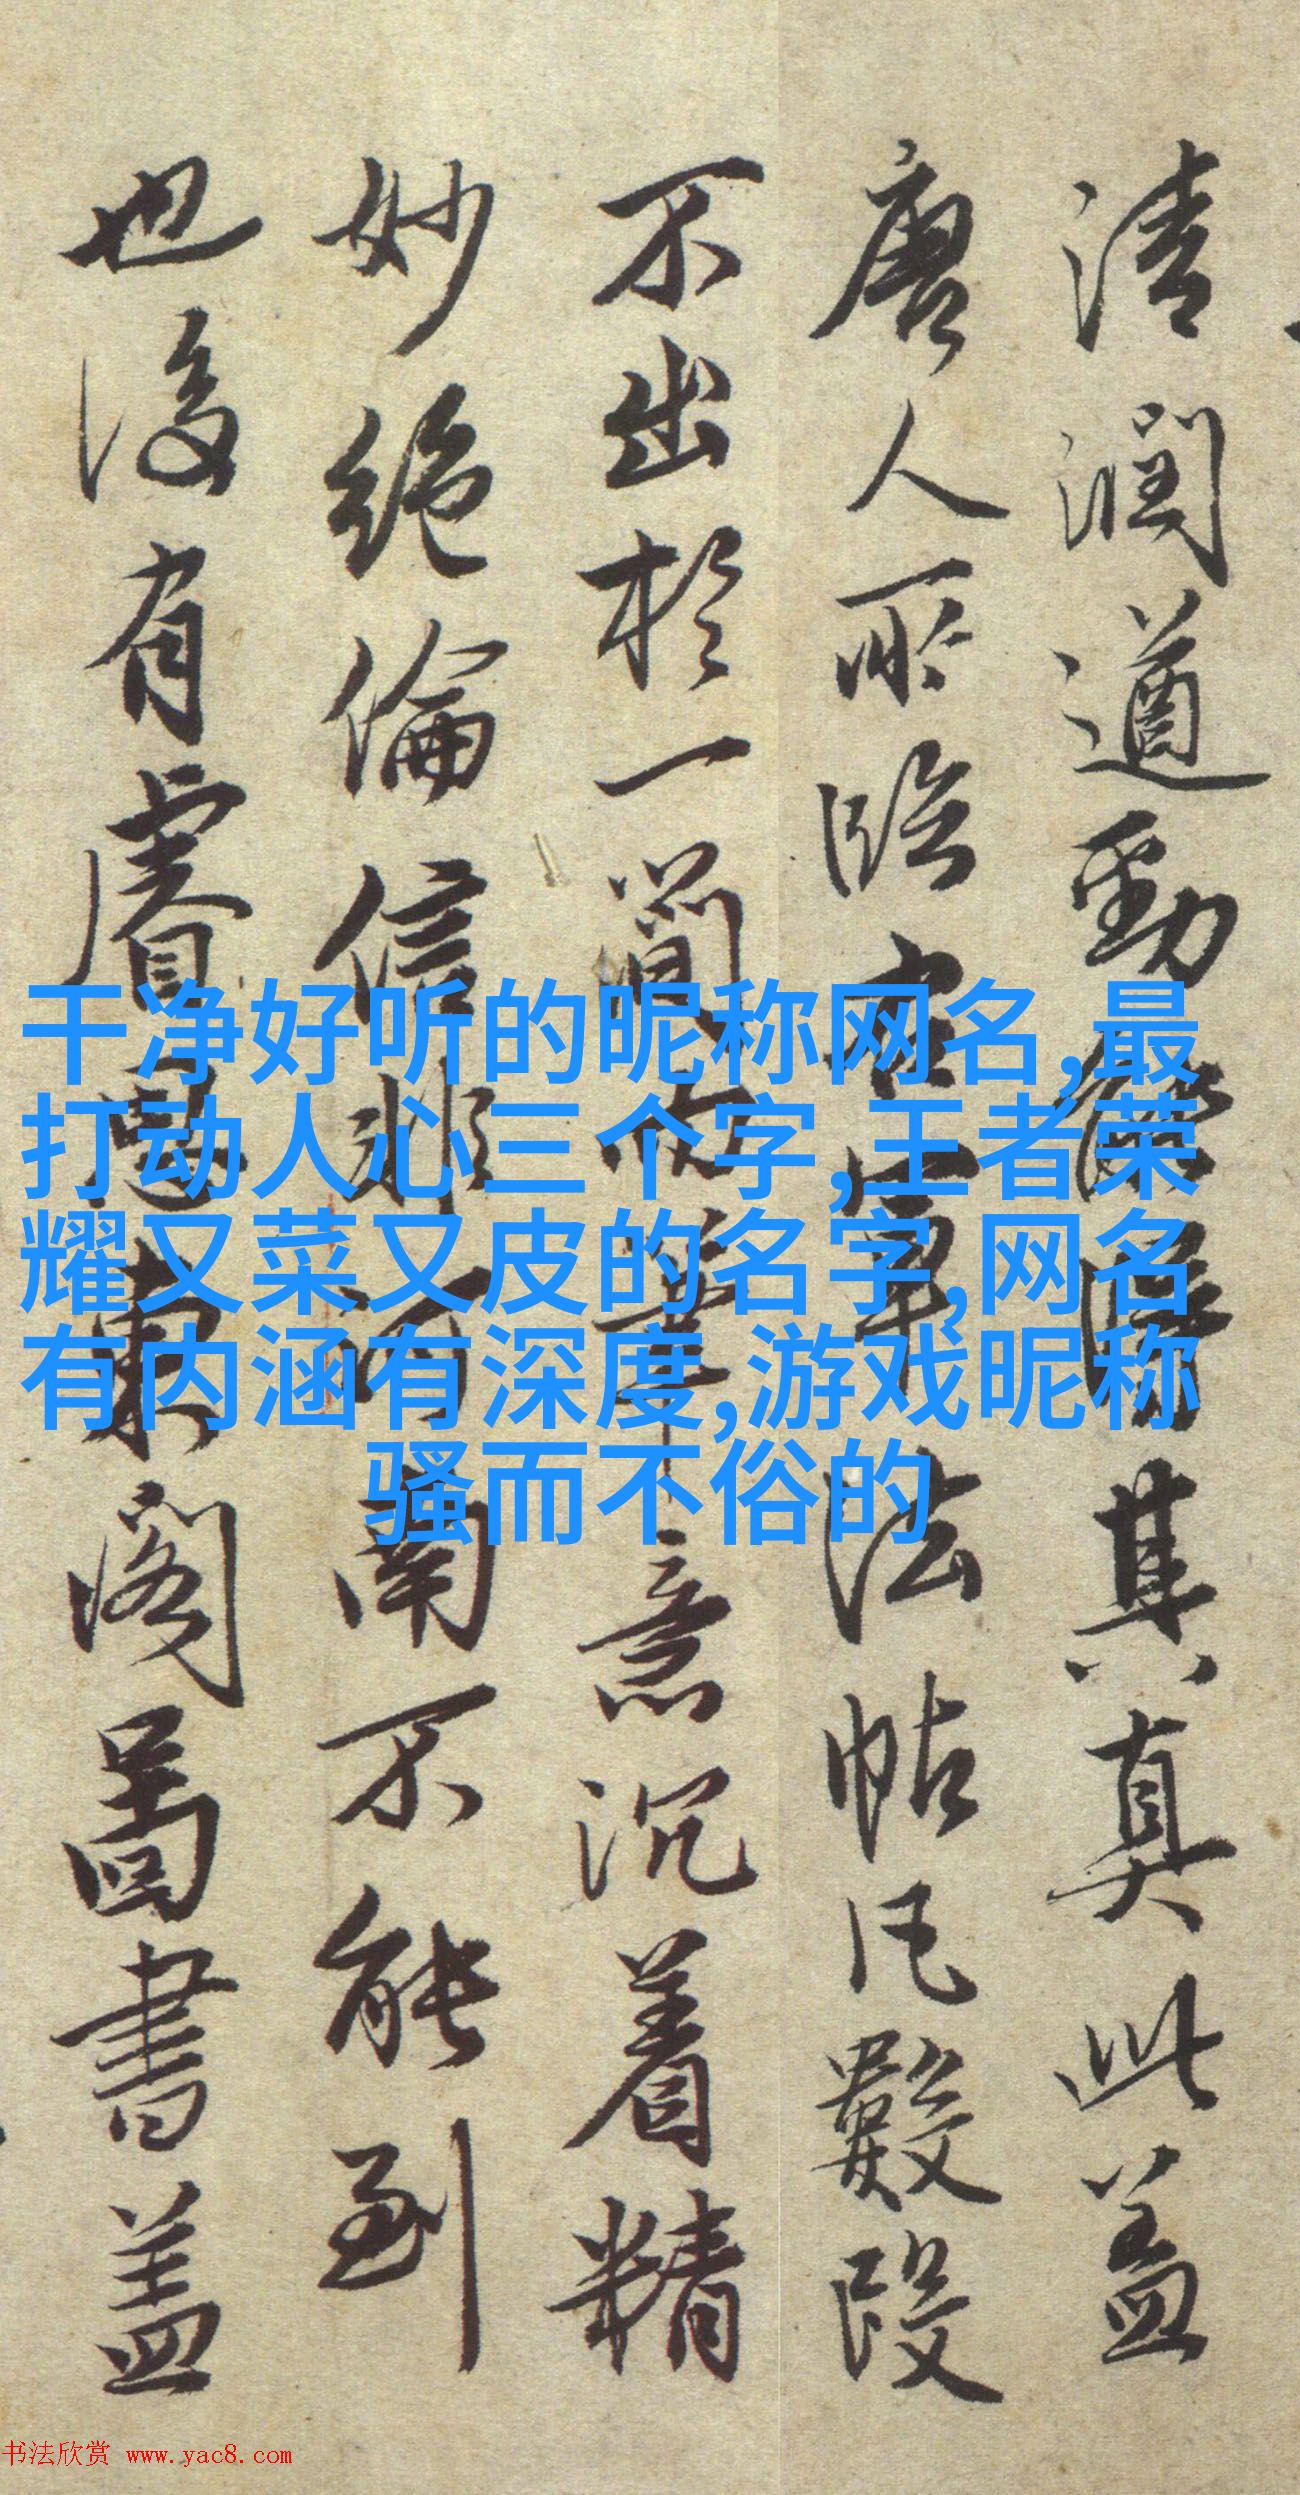 清潤遒勁其真此蓋
唐人所臨軍法帖凡數段
不出於一簡筆意沉着精
妙絕倫信非河南不能到
也後有睿思東閣圖書蓋
干净好听的昵称网名,最
打动人心三个字,王者荣
耀又菜又皮的名字,网名
有内涵有深度,游戏昵称
骚而不俗的
书法欣赏 www.yac8.com